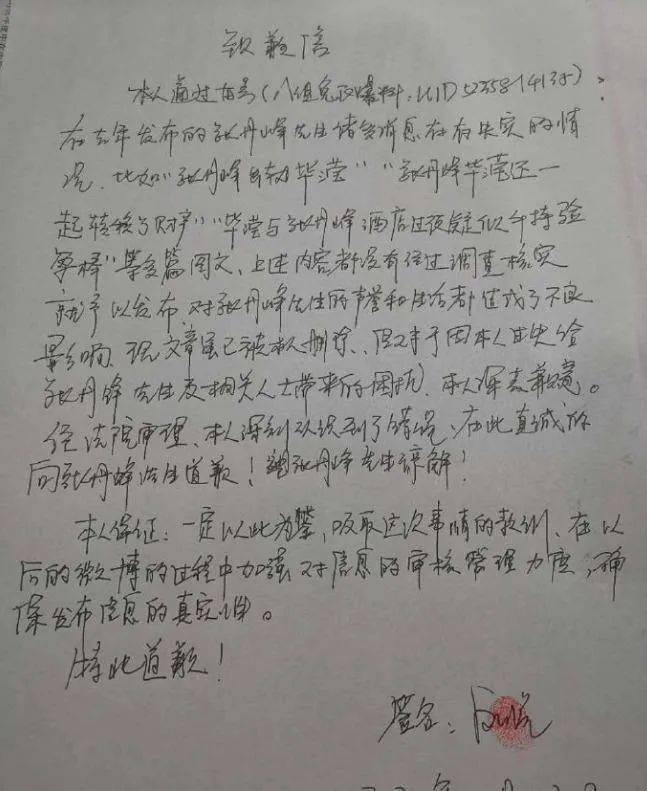 致歉信
本人通过有号(八组兔区爆料,UID 5235814135),
在去年发布的张丹峰先生诸多消息存在失实的情
况,比如"张丹峰出轨毕滢""张丹峰毕滢还一
起转移了财产""毕滢与张丹峰酒店过夜疑似令持验
孕棒"等多篇图文,上述内容都没有经过调查核实
就予以发布,对张丹峰先生的声誉和生活都造成了不良
影响,现文章虽已被本人删除,但对于因本人过失给
张丹峰先生及相关人士带来的困扰,本人深表歉意。
经法院审理,本人深刻认识到了错误,在此真诚的
向张丹峰先生道歉!请张丹峰先生谅解!
本人保证:一定以此为鉴,吸取这次事情的教训,在以
后的微博的过程中加强对信息的审核管理力度,确
保发布信息的真实性。
特此道歉!
签名: